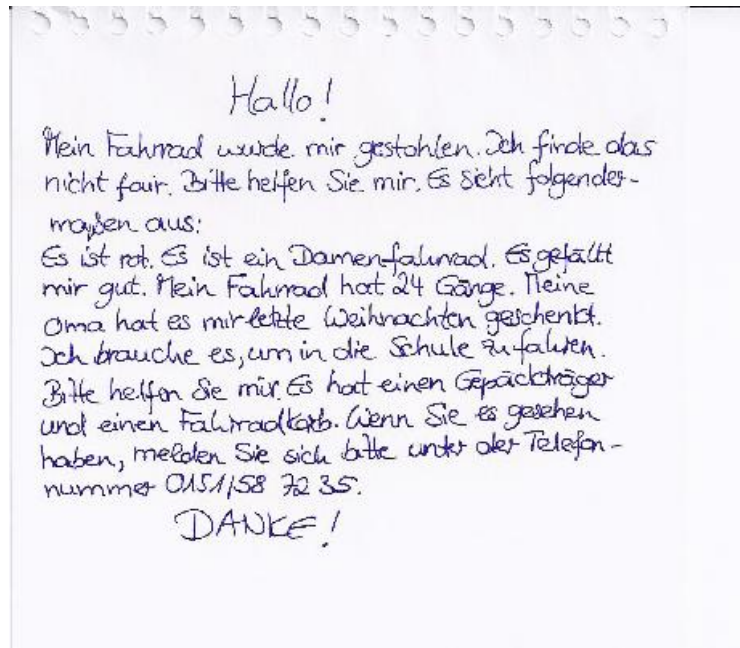 Hallo!
Mein Fahrrad wurde mir gestohlen. Ich finde das
nicht fair. Bitte helfen Sie mir. Es sieht folgender-
maßen aus:
Es ist rot. Es ist ein Damenfahrrad. Es gefällt
mir gut. Mein Fahrrad hat 24 Gänge. Meine
Oma hat es mir letzte Weihnachten geschenkt.
Ich brauche es, um in die Schule zu fahren.
Bitte helfen Sie mir. Es hat einen Gepäckträger
und einen Fahrradkorb. Wenn Sie es gesehen
haben, melden Sie sich bitte unter der Telefon-
nummer 0151/58 72 35.
DANKE!